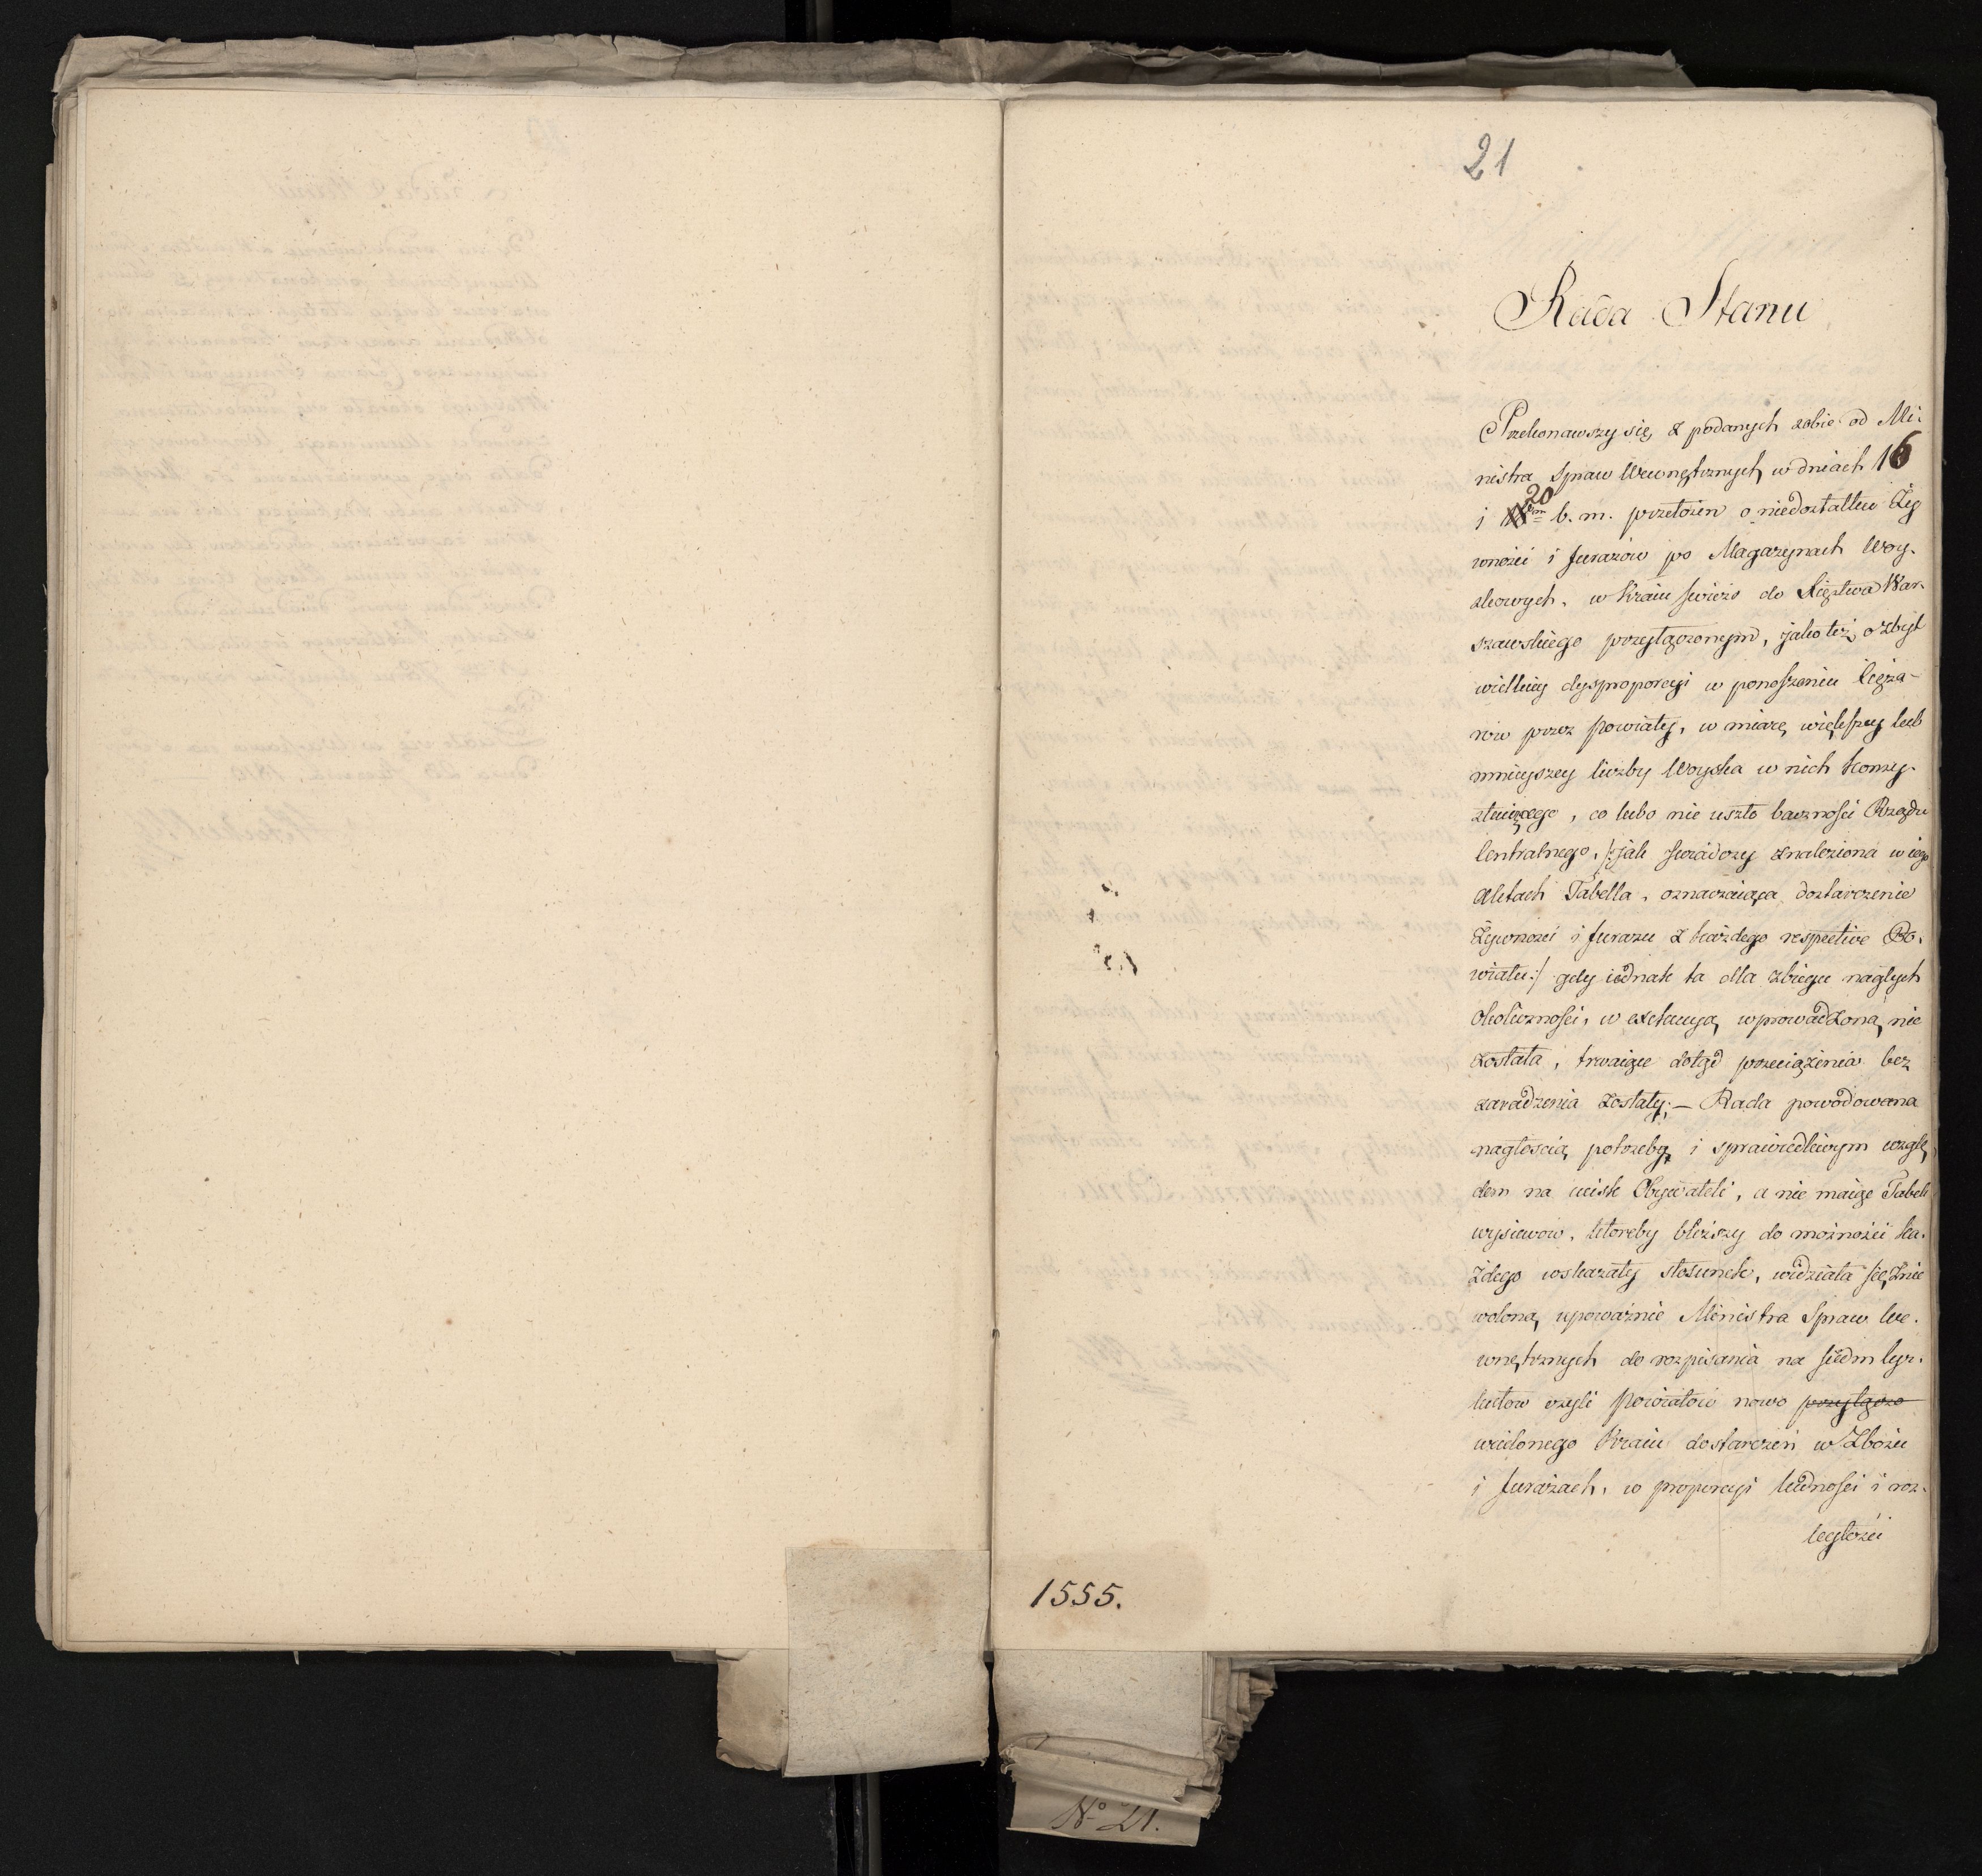 21
Rada Stanu
Przekonawszy się, z podanych sobie od Mi-
nistra Spraw Wewnętrznych, w dniach 16
i 20 b. m. przełożeń o niedostatku Ży
wności i furażów po Magazynach Woy-
skowych, w Kraiu świéżo do Xięstwa War-
szawskiego przyłączonym, jako też o zbyt
wielkiey dysproporcyi w ponoszeniu Cięża-
rów przez Powiaty, w miarę większey lub
mnieyszey liczby Woyska w nich konsy-
stuiącego, co lubo nie uszło baczności Rządu
Centralnego, /:jak świadczy znaleziona w iego
Aktach Tabella, oznaczaiąca dostarczenie
Żywności i furażu z każdego respective Po-
wiatu:/ gdy iednak ta dla zbiegu nagłych
Okoliczności, w exekucyą wprowadzoną nie
została, trwaiące dotąd przeciążenia bez
zaradzenia zostały; — Rada powodowana
nagłością potrzeby i sprawiedliwym wzglę-
dem na ucisk Obywateli, a nie maiąc Tabell
wysiewów, któreby bliższy do możności ka-
żdego wskazały stosunek, widziała się znie
woloną upoważnić Ministra Spraw We-
wnętrznych do rozpisania na siedm Cyr-
kułów czyli Powiatów nowo przyłączo
wcielonego Kraiu dostarczeń w Zbożu
i furażach, w proporcyi ludności i roz-
ległości
1555.
No 21.